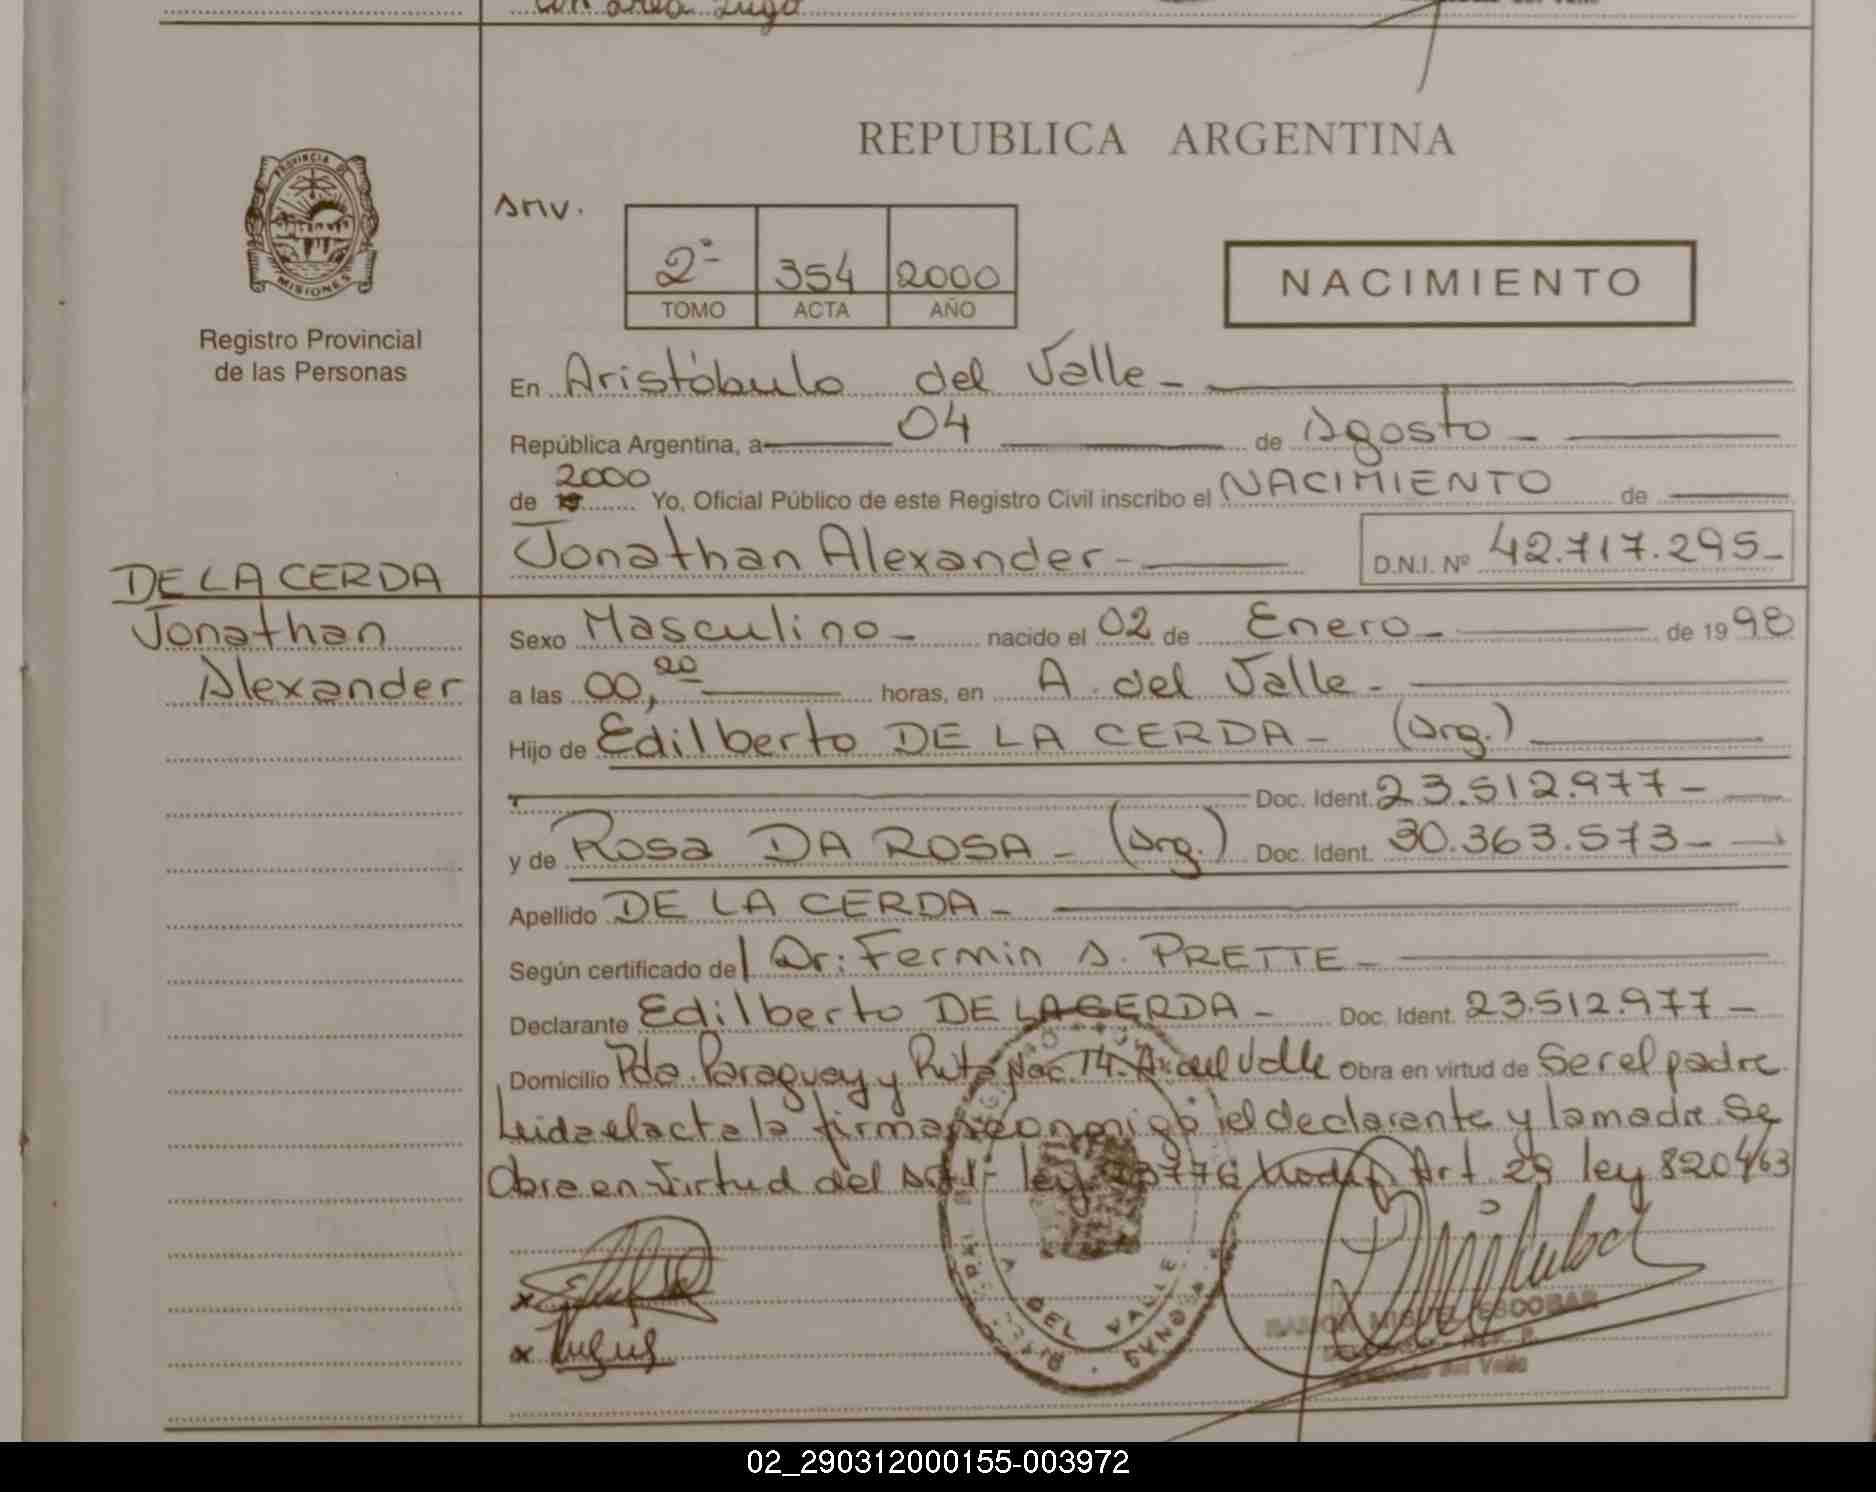 PROVINCIA DE
MISIONES
Registro Provincial
de las Personas
REPUBLICA ARGENTINA
2º 354 2000
TOMO ACTA AÑO
NACIMIENTO
En Aristóbulo del Valle -
República Argentina, a 04 de Agosto -
de 2000 Yo, Oficial Público de este Registro Civil inscribo el NACIMIENTO de
Jonathan Alexander - D.N.I. Nº 42.717.295-
DE LA CERDA
Jonathan
Alexander
Sexo Masculino - nacido el 02 de Enero - de 1998
a las 00,20 horas, en A. del Valle -
Hijo de Edilberto DE LA CERDA - (Arg.)
Doc. Ident. 23.512.977 -
y de Rosa DA ROSA - (Arg.) Doc. Ident. 30.363.573 -
Apellido DE LA CERDA -
Según certificado del Dr: Fermin A. PRETTE -
Declarante Edilberto DE LA CERDA - Doc. Ident. 23.512.977 -
Domicilio Pdo. Paraguay y Ruta Nac. 14. A. del Valle Obra en virtud de Ser el padre
Leida el acta la firman conmigo el declarante y la madre. Se
Obra en virtud del Art 1- ley 23776 Modif. Art. 29 ley 8204/63
A. DEL VALLE
MIGUEL ESCOBAR
del Valle
02_290312000155-003972